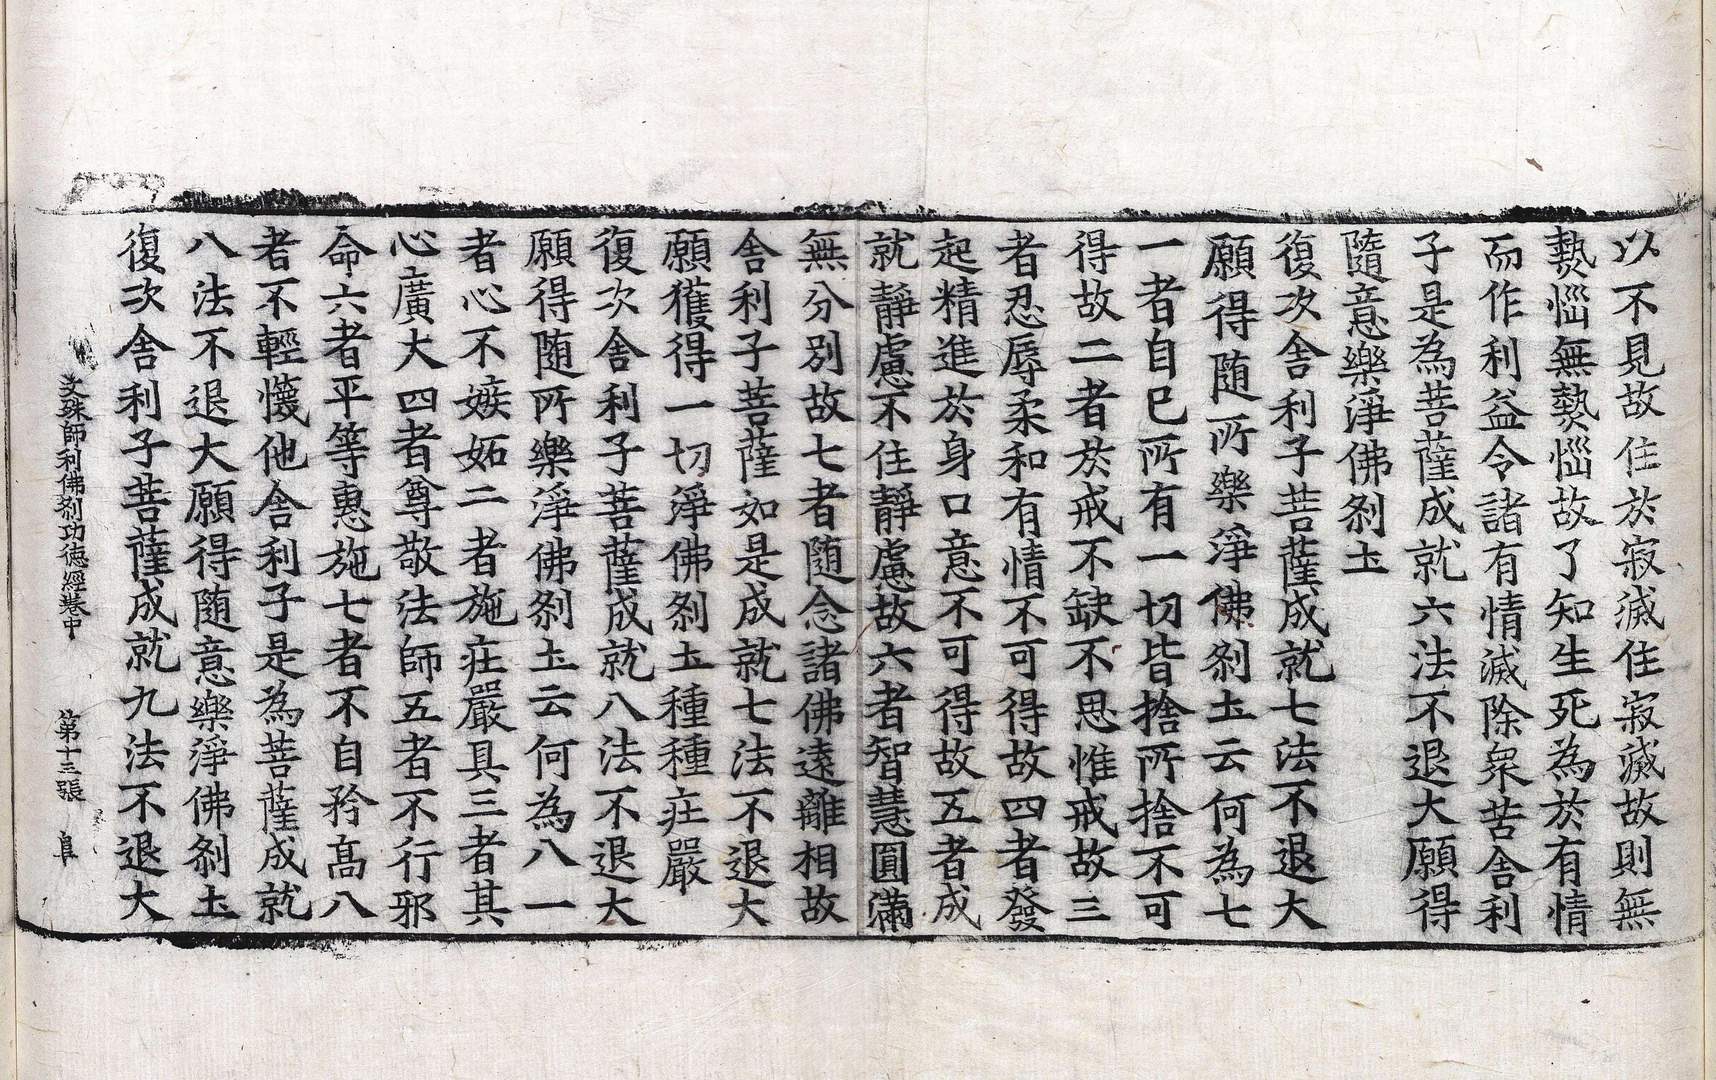 以不見故住於寂滅住寂滅故則無
熱惱無熱惱故了知生死為於有情
而作利益令諸有情滅除衆苦舍利
子是為菩薩成就六法不退大願得
隨意樂淨佛刹土
復次舍利子菩薩成就七法不退大
願得随所樂淨佛刹土云何為七
一者自已所有一切皆捨所捨不可
得故二者於戒不缺不思惟戒故三
者忍辱柔和有情不可得故四者發
起精進於身口意不可得故五者成
就靜慮不住靜慮故六者智慧圓滿
無分別故七者随念諸佛遠離相故
舍利子菩薩如是成就七法不退大
願獲得一切淨佛刹土種種莊嚴
復次舍利子菩薩成就八法不退大
願得随所樂淨佛刹土云何為八一
者心不嫉妬二者施莊嚴具三者其
心廣大四者尊敬法師五者不行邪
命六者平等惠施七者不自矜高八
者不輕懱他舍利子是為菩薩成就
八法不退大願得随意樂淨佛刹土
復次舍利子菩薩成就九法不退大
文殊師利佛刹功德經卷中 第十三張 阜